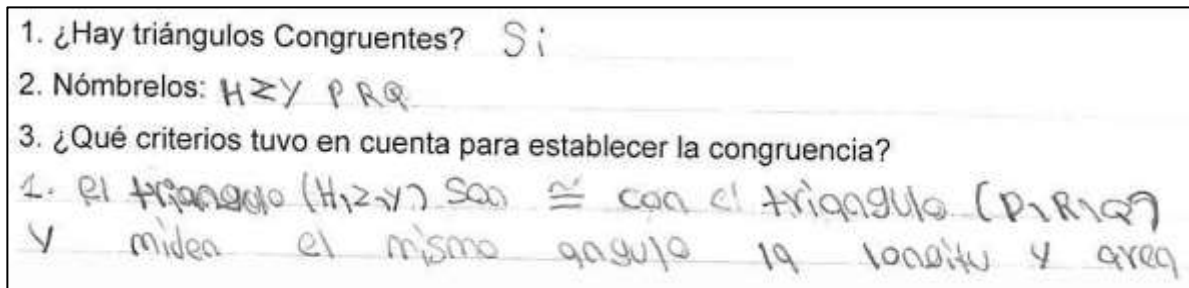 1. ¿Hay triángulos Congruentes? Si
2. Nómbrelos: HZY PRQ
3. ¿Qué criterios tuvo en cuenta para establecer la congruencia?
1. El triangulo (H,Z,Y) son ≅ con el triangulo (P,R,Q)
y miden el mismo angulo la longitu y area